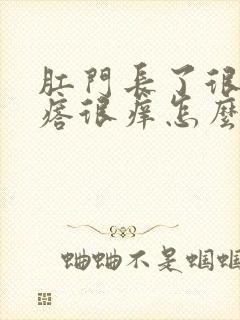 肛門長了很
痞很痒怎麼
蛐蛐不是蝈蝈